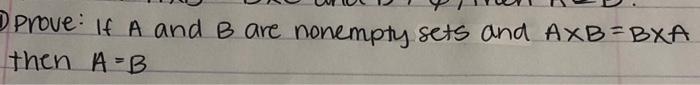 Prove: If A and B are nonempty sets and A×B=B×A
then A=B